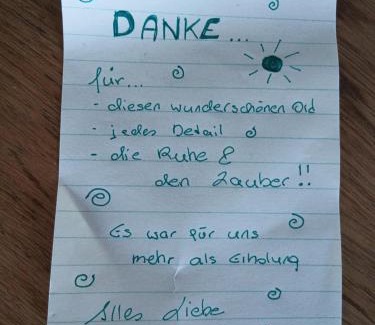 DANKE...
für...
- diesen wunderschönen Ord
- jedes Detail
- die Ruhe &
den Zauber!!
Es war für uns
mehr als Erholung
Alles Liebe